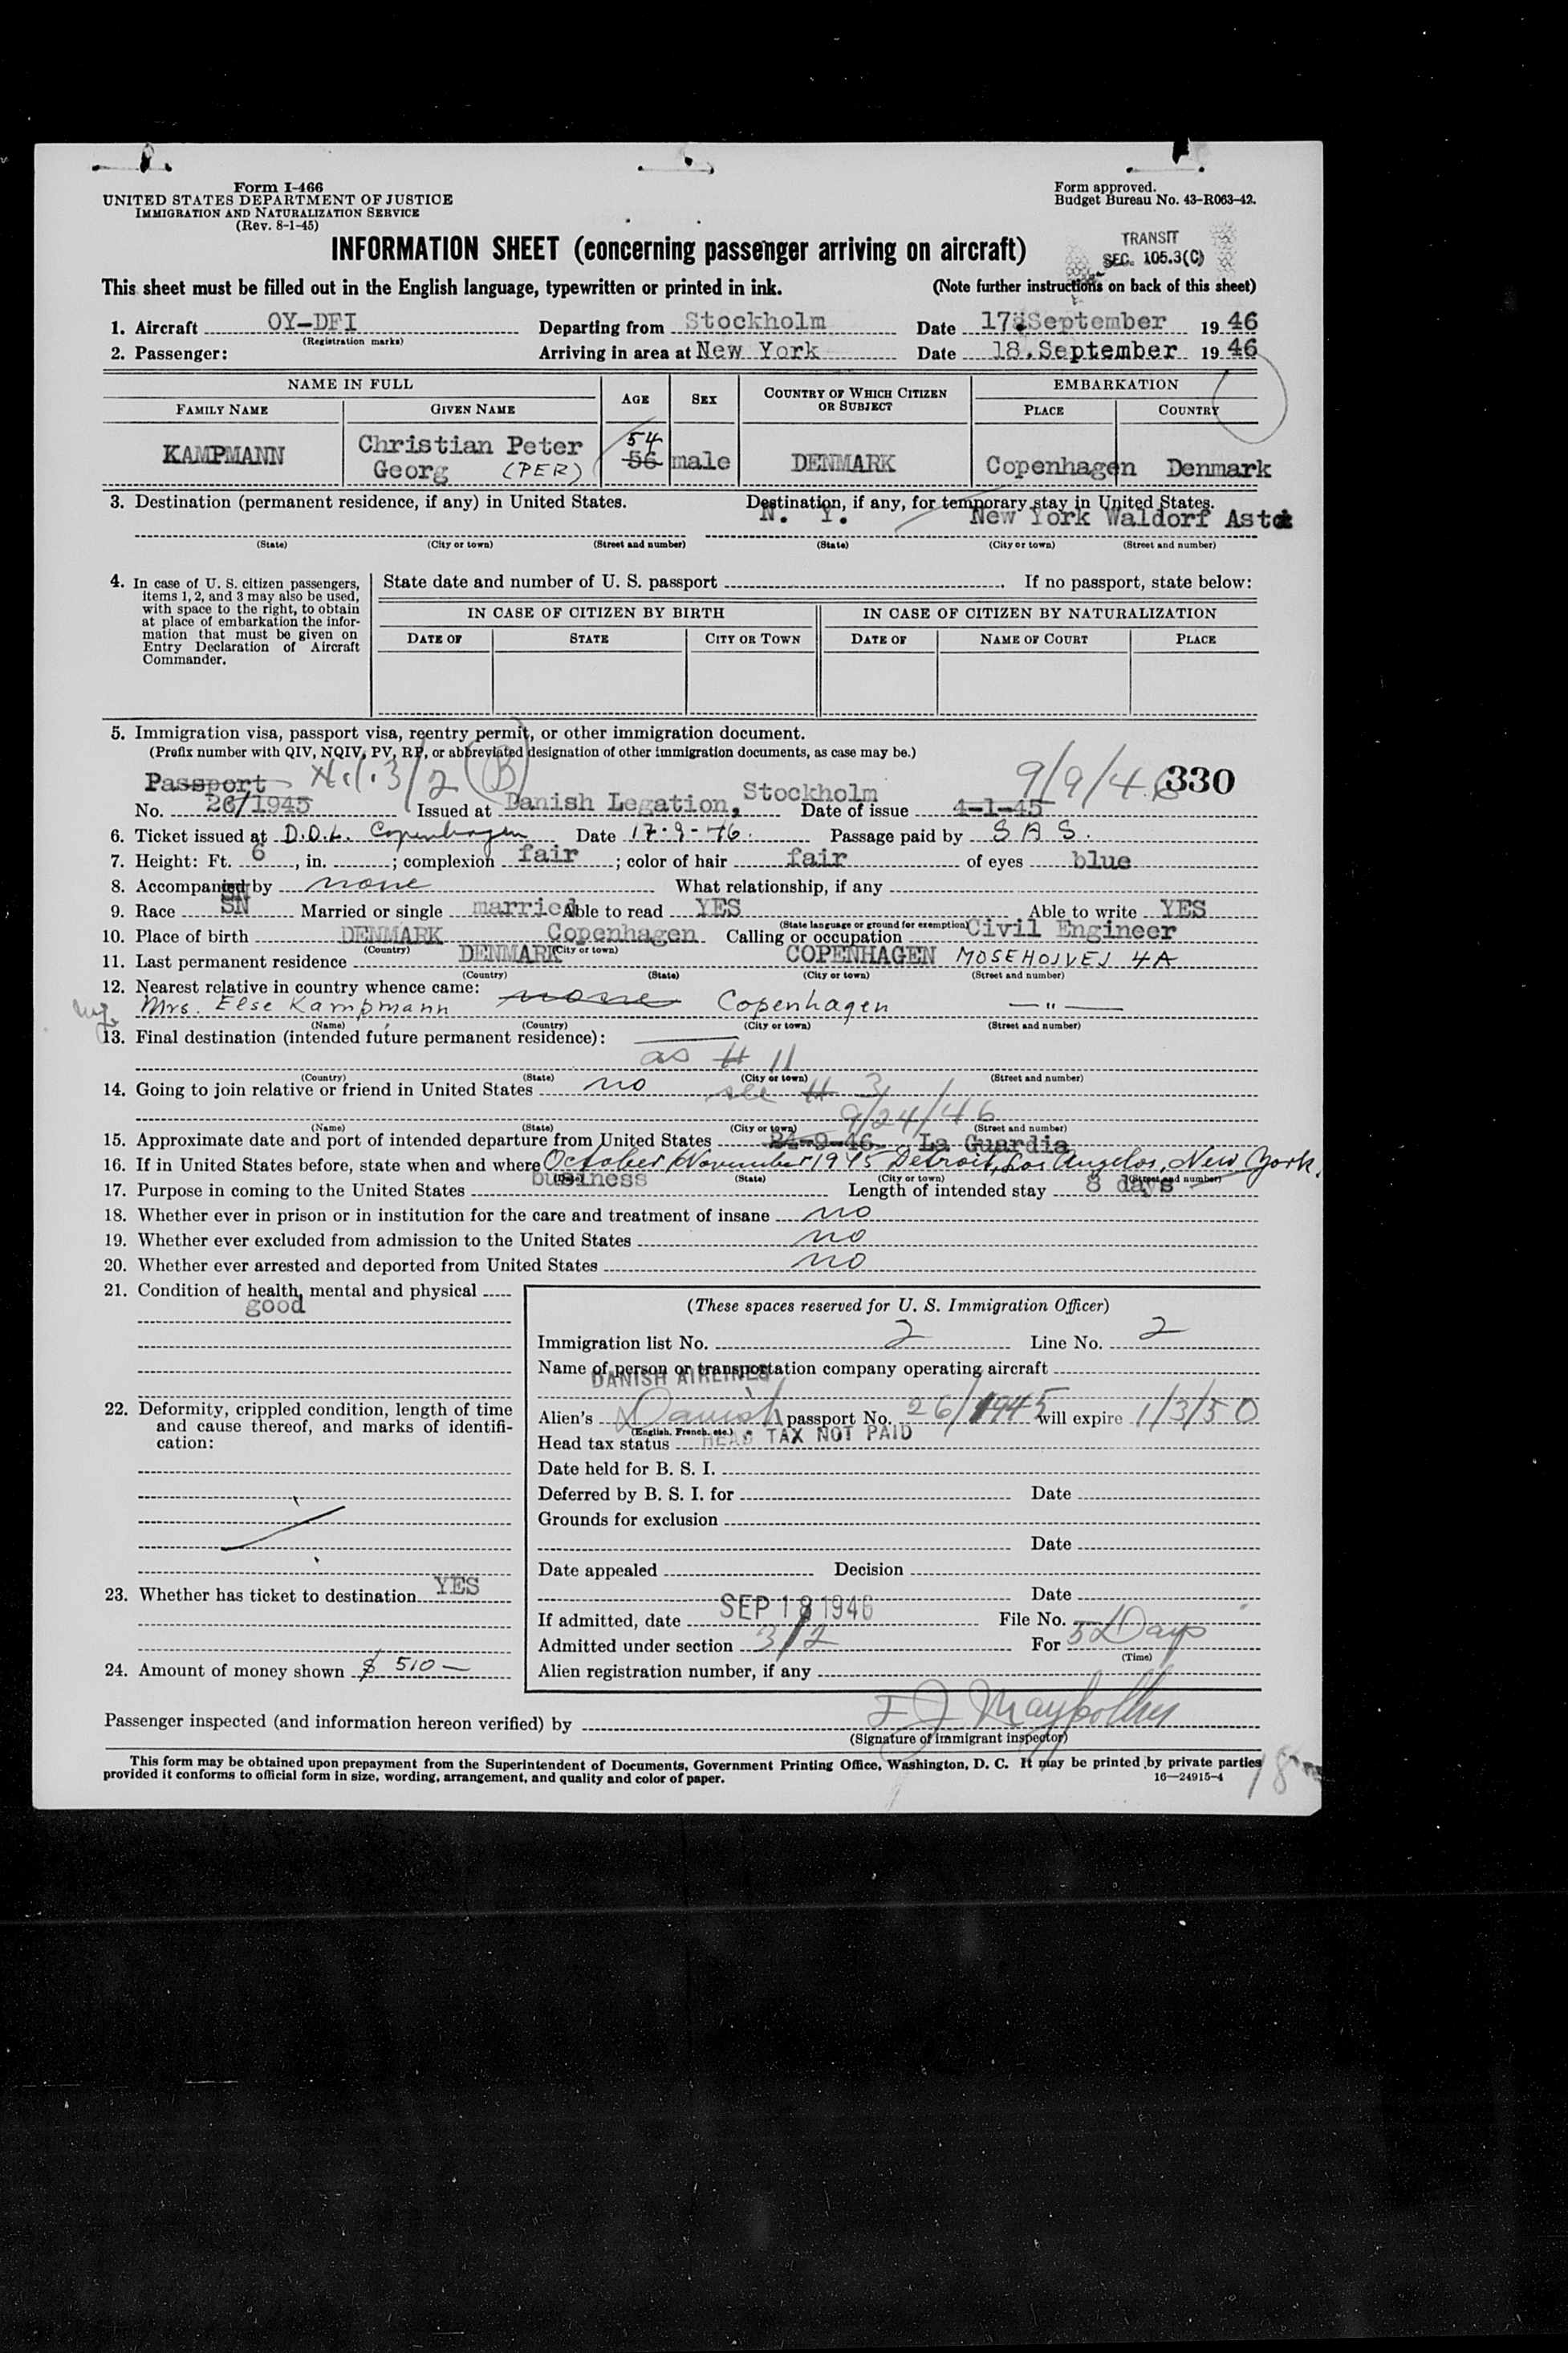 Form I-466
UNITED STATES DEPARTMENT OF JUSTICE
IMMIGRATION AND NATURALIZATION SERVICE
(Rev. 8-1-45)
Form approved.
Budget Bureau No. 43-R063-42.
INFORMATION SHEET (concerning passenger arriving on aircraft)
TRANSIT
SEC. 105.3(C)
This sheet must be filled out in the English language, typewritten or printed in ink. (Note further instructions on back of this sheet)
1. Aircraft OY-DFI Departing from Stockholm Date 17. September 1946
(Registration marks)
2. Passenger: Arriving in area at New York Date 18. September 1946
NAME IN FULL AGE SEX COUNTRY OF WHICH CITIZEN OR SUBJECT EMBARKATION
FAMILY NAME GIVEN NAME PLACE COUNTRY
KAMPMANN Christian Peter Georg (PER) 54 56 male DENMARK Copenhagen Denmark
3. Destination (permanent residence, if any) in United States. Destination, if any, for temporary stay in United States.
N. Y. New York Waldorf Asto
(State) (City or town) (Street and number) (State) (City or town) (Street and number)
4. In case of U. S. citizen passengers, items 1, 2, and 3 may also be used, with space to the right, to obtain at place of embarkation the information that must be given on Entry Declaration of Aircraft Commander.
State date and number of U. S. passport If no passport, state below:
IN CASE OF CITIZEN BY BIRTH IN CASE OF CITIZEN BY NATURALIZATION
DATE OF STATE CITY OR TOWN DATE OF NAME OF COURT PLACE
5. Immigration visa, passport visa, reentry permit, or other immigration document.
(Prefix number with QIV, NQIV, PV, RP, or abbreviated designation of other immigration documents, as case may be.)
Passport 3/2 (B) 9/9/46 330
No. 26/1945 Issued at Danish Legation, Stockholm Date of issue 4-1-45
6. Ticket issued at D.D.L. Copenhagen Date 17-9-46. Passage paid by S A S.
7. Height: Ft. 6, in. ; complexion fair ; color of hair fair of eyes blue
8. Accompanied by none What relationship, if any
9. Race SN Married or single married Able to read YES Able to write YES
(State language or ground for exemption)
10. Place of birth DENMARK Copenhagen Calling or occupation Civil Engineer
(Country) (City or town)
11. Last permanent residence DENMARK COPENHAGEN MOSEHOJVEJ 4A
(Country) (State) (City or town) (Street and number)
12. Nearest relative in country whence came:
Mrs. Else Kampmann none Copenhagen — " —
(Name) (Country) (City or town) (Street and number)
13. Final destination (intended future permanent residence):
as # 11
(Country) (State) (City or town) (Street and number)
14. Going to join relative or friend in United States no see # 3
9/24/46
(Name) (State) (City or town) (Street and number)
15. Approximate date and port of intended departure from United States 24-9-46 La Guardia
16. If in United States before, state when and where October/November 1945 Detroit, Los Angelos, New York.
(Date) (State) (City or town) (Street and number)
17. Purpose in coming to the United States business Length of intended stay 8 days
18. Whether ever in prison or in institution for the care and treatment of insane no
19. Whether ever excluded from admission to the United States no
20. Whether ever arrested and deported from United States no
21. Condition of health, mental and physical
good
22. Deformity, crippled condition, length of time and cause thereof, and marks of identification:
23. Whether has ticket to destination YES
24. Amount of money shown $ 510—
(These spaces reserved for U. S. Immigration Officer)
Immigration list No. 2 Line No. 2
Name of person or transportation company operating aircraft
DANISH AIRLINES
Alien's Danish passport No. 26/1945 will expire 1/3/50
(English, French, etc.)
Head tax status HEAD TAX NOT PAID
Date held for B. S. I.
Deferred by B. S. I. for Date
Grounds for exclusion
Date
Date appealed Decision
Date
If admitted, date SEP 18 1946 File No.
Admitted under section 3/2 For 5 Days
(Time)
Alien registration number, if any
Passenger inspected (and information hereon verified) by
(Signature of immigrant inspector)
This form may be obtained upon prepayment from the Superintendent of Documents, Government Printing Office, Washington, D. C. It may be printed by private parties
provided it conforms to official form in size, wording, arrangement, and quality and color of paper. 16—24915-4